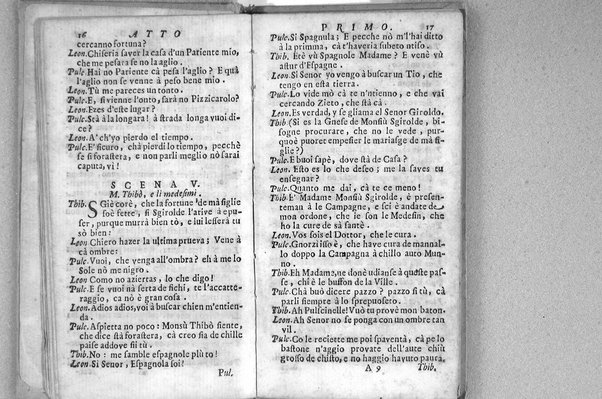 16 ATTO
cercanno fortuna?
Leon. Chiseria saver la casa d'un Patiente mio,
che me pesara se no la aglio.
Pulc. Hai no Patiente cà pesa l'aglio? E quà
l'aglio non se venne à peso bene mio.
Leon. Tù me pareces un tonto.
Pulc. E, si vienne l'onto, sarà no Pizzicarolo?
Leon. Eres d'este lugar?
Pulc. Stà à la longara! à strada longa vuoi di-
ce?
Leon. A'ch'yo pierdo el tiempo.
Pulc. E' sicuro, chà pierdi lo tiempo, pecchè
se si forastera, e non parli meglio nò sarai
caputa, vì!
SCENA V.
M. Thibò, e li medesimi.
Thib. Sì Giè corè, che la fortune de mà figlie
soè fette, si Sgirolde l'arive à epu-
ser, purque murrà bien tò, e lui lesserà tu
sò bien!
Leon. Chiero hazer la ultima prueva; Venè à
cà ombre:
Pulc. Vuoi, che venga all'ombra? eh à me lo
Sole nò me nigro.
Leon. Como no aziertas, lo che digo!
Pulc. E se vuoi nà serta de fichi, te l'accatte-
raggio, ca nò è gran cosa.
Leon. Adios adios, voi à buscar chien m'entien-
da.
Pulc. Aspietta no poco: Monsù Thibò siente,
che dice stà forastera, cà creo sia de chille
paise addove sii tù.
Thib. No: me samble espagnole plù to!
Leon. Si Senor, Espagnola soi!
Pul.
PRIMO. 17
Pulc. Si Spagnula; E pecche nò m'l'hai ditto
à la primma, cà t'haveria subeto ntiso.
Thib. Etè vù Spagnole Madame? E venè vù
astur d'Espagne.
Leon. Si Senor yo vengo à buscar un Tio, che
tengo en esta tierra.
Pulc. Lo vide mò cà te n'ntienno, e che vai
cercando Zieto, che stà cà.
Leon. Es verdad, y se gliama el Senor Giroldo.
Thib. (Si es la Gnese de Monsiù Sgirolde, bi-
sogne procurare, che no le vede, pur-
quoè puoret empesier le mariasge de mà fi-
glie?)
Pulc. E buoi sapè, dove stà de Casa?
Leon. Esto es lo che deseo; me la saves tu
ensegnar?
Pulc. Quanto me dai, cà te ce meno!
Thib. E' Madame Monsiù Sgirolde, è presen-
teman à le Campagne, e sei è andate de
mon ordone, che ie son le Medesin, che
ho la cure de sà santè.
Leon. Vos sois el Dottor, che le cura.
Pulc. Gnorzì isso è, che have cura de mannal-
lo doppo la Campagna à chillo auto Mun-
no.
Thib. Eh Madame, ne donè udianse à quaste pas-
se, chi è le buffon de la Ville.
Pulc. Chà buò dicere pazzo? pazzo si tù, cà
parli siempre à lo sprepuosero.
Thib. Ah Pulcinelle! Vuò tu provè mon baton.
Leon. Ah Senor no se ponga con un ombre tan
vil.
Pulc. Co le reciette me poi spaventà, cà pe lo
bastone n'aggio provate dell'aute chiù
grosso de chisto, e no haggio havuto paura.
A 9 Thib.